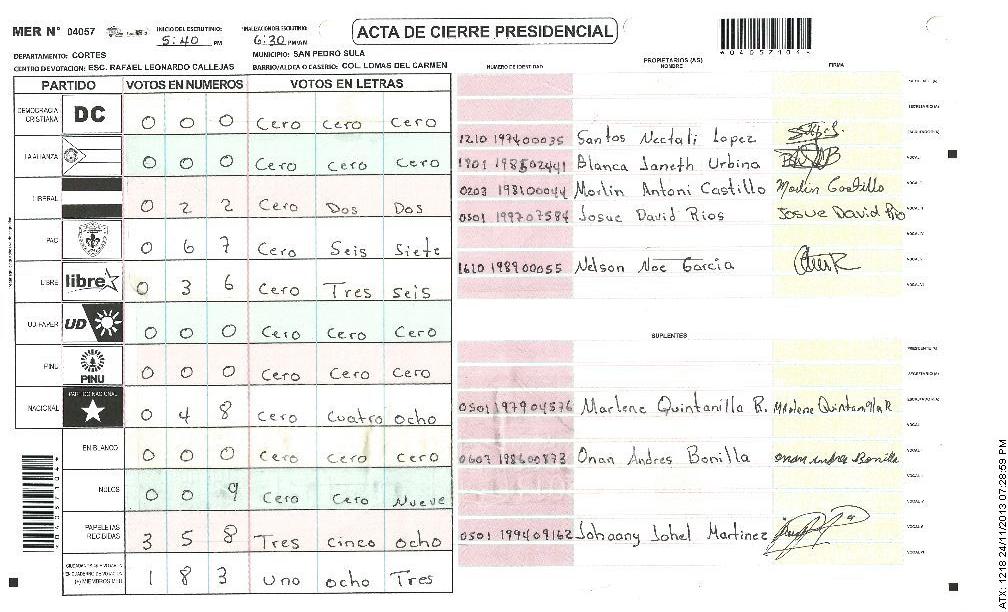 MER N° 04057 INICIO DEL ESCRUTINIO: 5:40 PM FINALIZACION DEL ESCRUTINIO: 6:30 PM/AM
ACTA DE CIERRE PRESIDENCIAL
*04057101*
DEPARTAMENTO: CORTES MUNICIPIO: SAN PEDRO SULA
CENTRO DE VOTACION: ESC. RAFAEL LEONARDO CALLEJAS BARRIO/ALDEA O CASERIO: COL. LOMAS DEL CARMEN
PARTIDO VOTOS EN NUMEROS VOTOS EN LETRAS
DEMOCRACIA CRISTIANA DC 0 0 0 Cero Cero Cero
LA ALIANZA 0 0 0 Cero Cero Cero
LIBERAL 0 2 2 Cero Dos Dos
PAC 0 6 7 Cero Seis Siete
LIBRE libre 0 3 6 Cero Tres seis
UD-FAPER UD 0 0 0 Cero Cero Cero
PINU PINU 0 0 0 Cero Cero Cero
NACIONAL PARTIDO NACIONAL 0 4 8 Cero Cuatro ocho
EN BLANCO 0 0 0 Cero Cero Cero
NULOS 0 0 9 Cero Cero Nueve
PAPELETAS RECIBIDAS 3 5 8 Tres Cinco ocho
1 8 3 Uno ocho Tres
NUMERO DE IDENTIDAD PROPIETARIOS (AS) NOMBRE FIRMA
SECRETARIO(A)
1210 197400035 Santos Nectali Lopez
Blanca Janeth Urbina VOCAL I
0203 198100044 Marlin Antoni Castillo Marlin Castillo
0501 199707584 Josue David Rios Josue David Rio
1610 198900055 Nelson Noe Garcia
SUPLENTES
PRESIDENTE (A)
SECRETARIO(A)
0501 197904576 Marlene Quintanilla R. Marlene Quintanilla R
0607 198600873 Onan Andres Bonilla onan andres Bonilla
0501 199409162 Johaany Johel Martinez
ATX: 1218 24/11/2013 07:28:59 PM